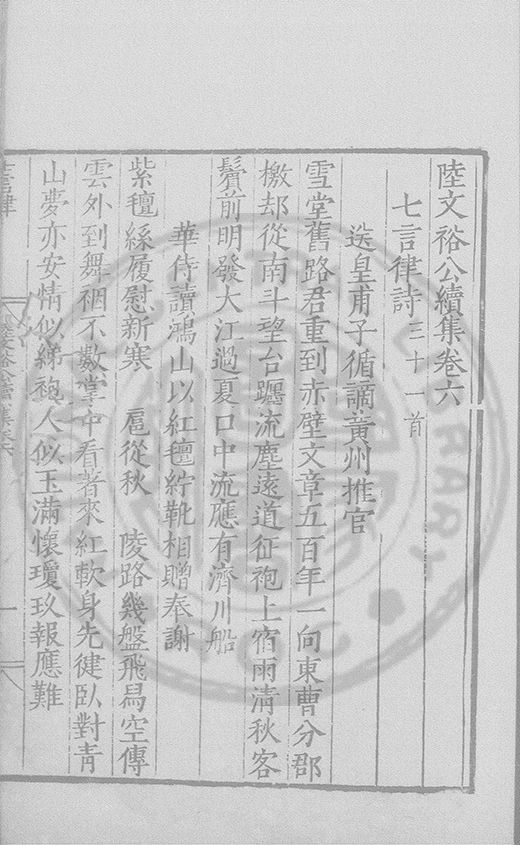 陸文裕公續集卷六
七言律詩三十一首
送皇甫子循謫黃州推官
雪堂舊路君重到赤壁文章五百年一向東曹分郡
檄却從南斗望台躔流塵遠道征袍上宿雨清秋客
鬢前明發大江過夏口中流應有濟川船
華侍讀鴻山以紅氊紵靴相贈奉謝
紫氊絲履慰新寒 扈從秋 陵路幾盤飛舄空傳
雲外到舞裀不數掌中看着來紅軟身先健臥對青
山夢亦安情似綈袍人似玉滿懷瓊玖報應難